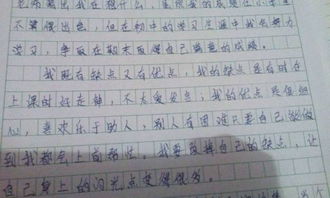 不算很出色，但在初中的学习生涯中我会努力
学习，争取在期末取得自己满意的成绩。
我既有缺点又有优点，我的缺点是有时在
上课时好走神，不太爱发言；我的优点是
心，喜欢乐于助人，别人有困难只要自己能做
到我都会上前帮忙。我要改掉自己的缺点，让
自己身上的闪光点变得很多。